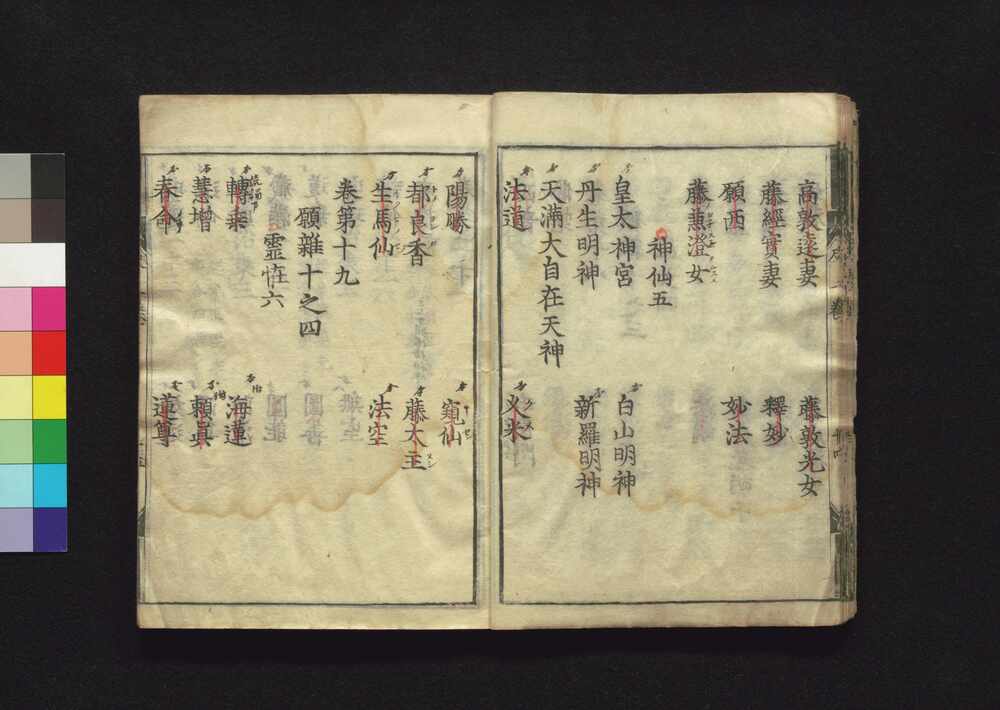 高敦遠妻　藤敦光女
藤經實妻　釋妙
願西　妙法
藤兼澄女
神仙五
皇太神宮　白山明神
丹生明神　新羅明神
天滿大自在天神
法道　久米
陽勝　窺仙
都良香　藤太主
生馬仙　法空
卷第十九
願雜十之四
靈恠六
轉乘　海蓮
慧增　賴眞
春命　道尊